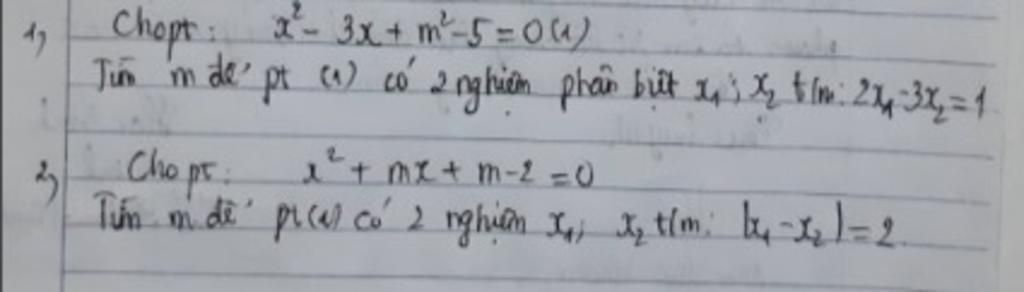 1, Cho pt: x² - 3x + m² - 5 = 0 (1)
Tìm m để pt (1) có 2 nghiệm phân biệt x₁; x₂ t/m: 2x₁ - 3x₂ = 1
2, Cho pt: x² + mx + m - 2 = 0
Tìm m để pt (1) có 2 nghiệm x₁; x₂ t/m: |x₁ - x₂| = 2.